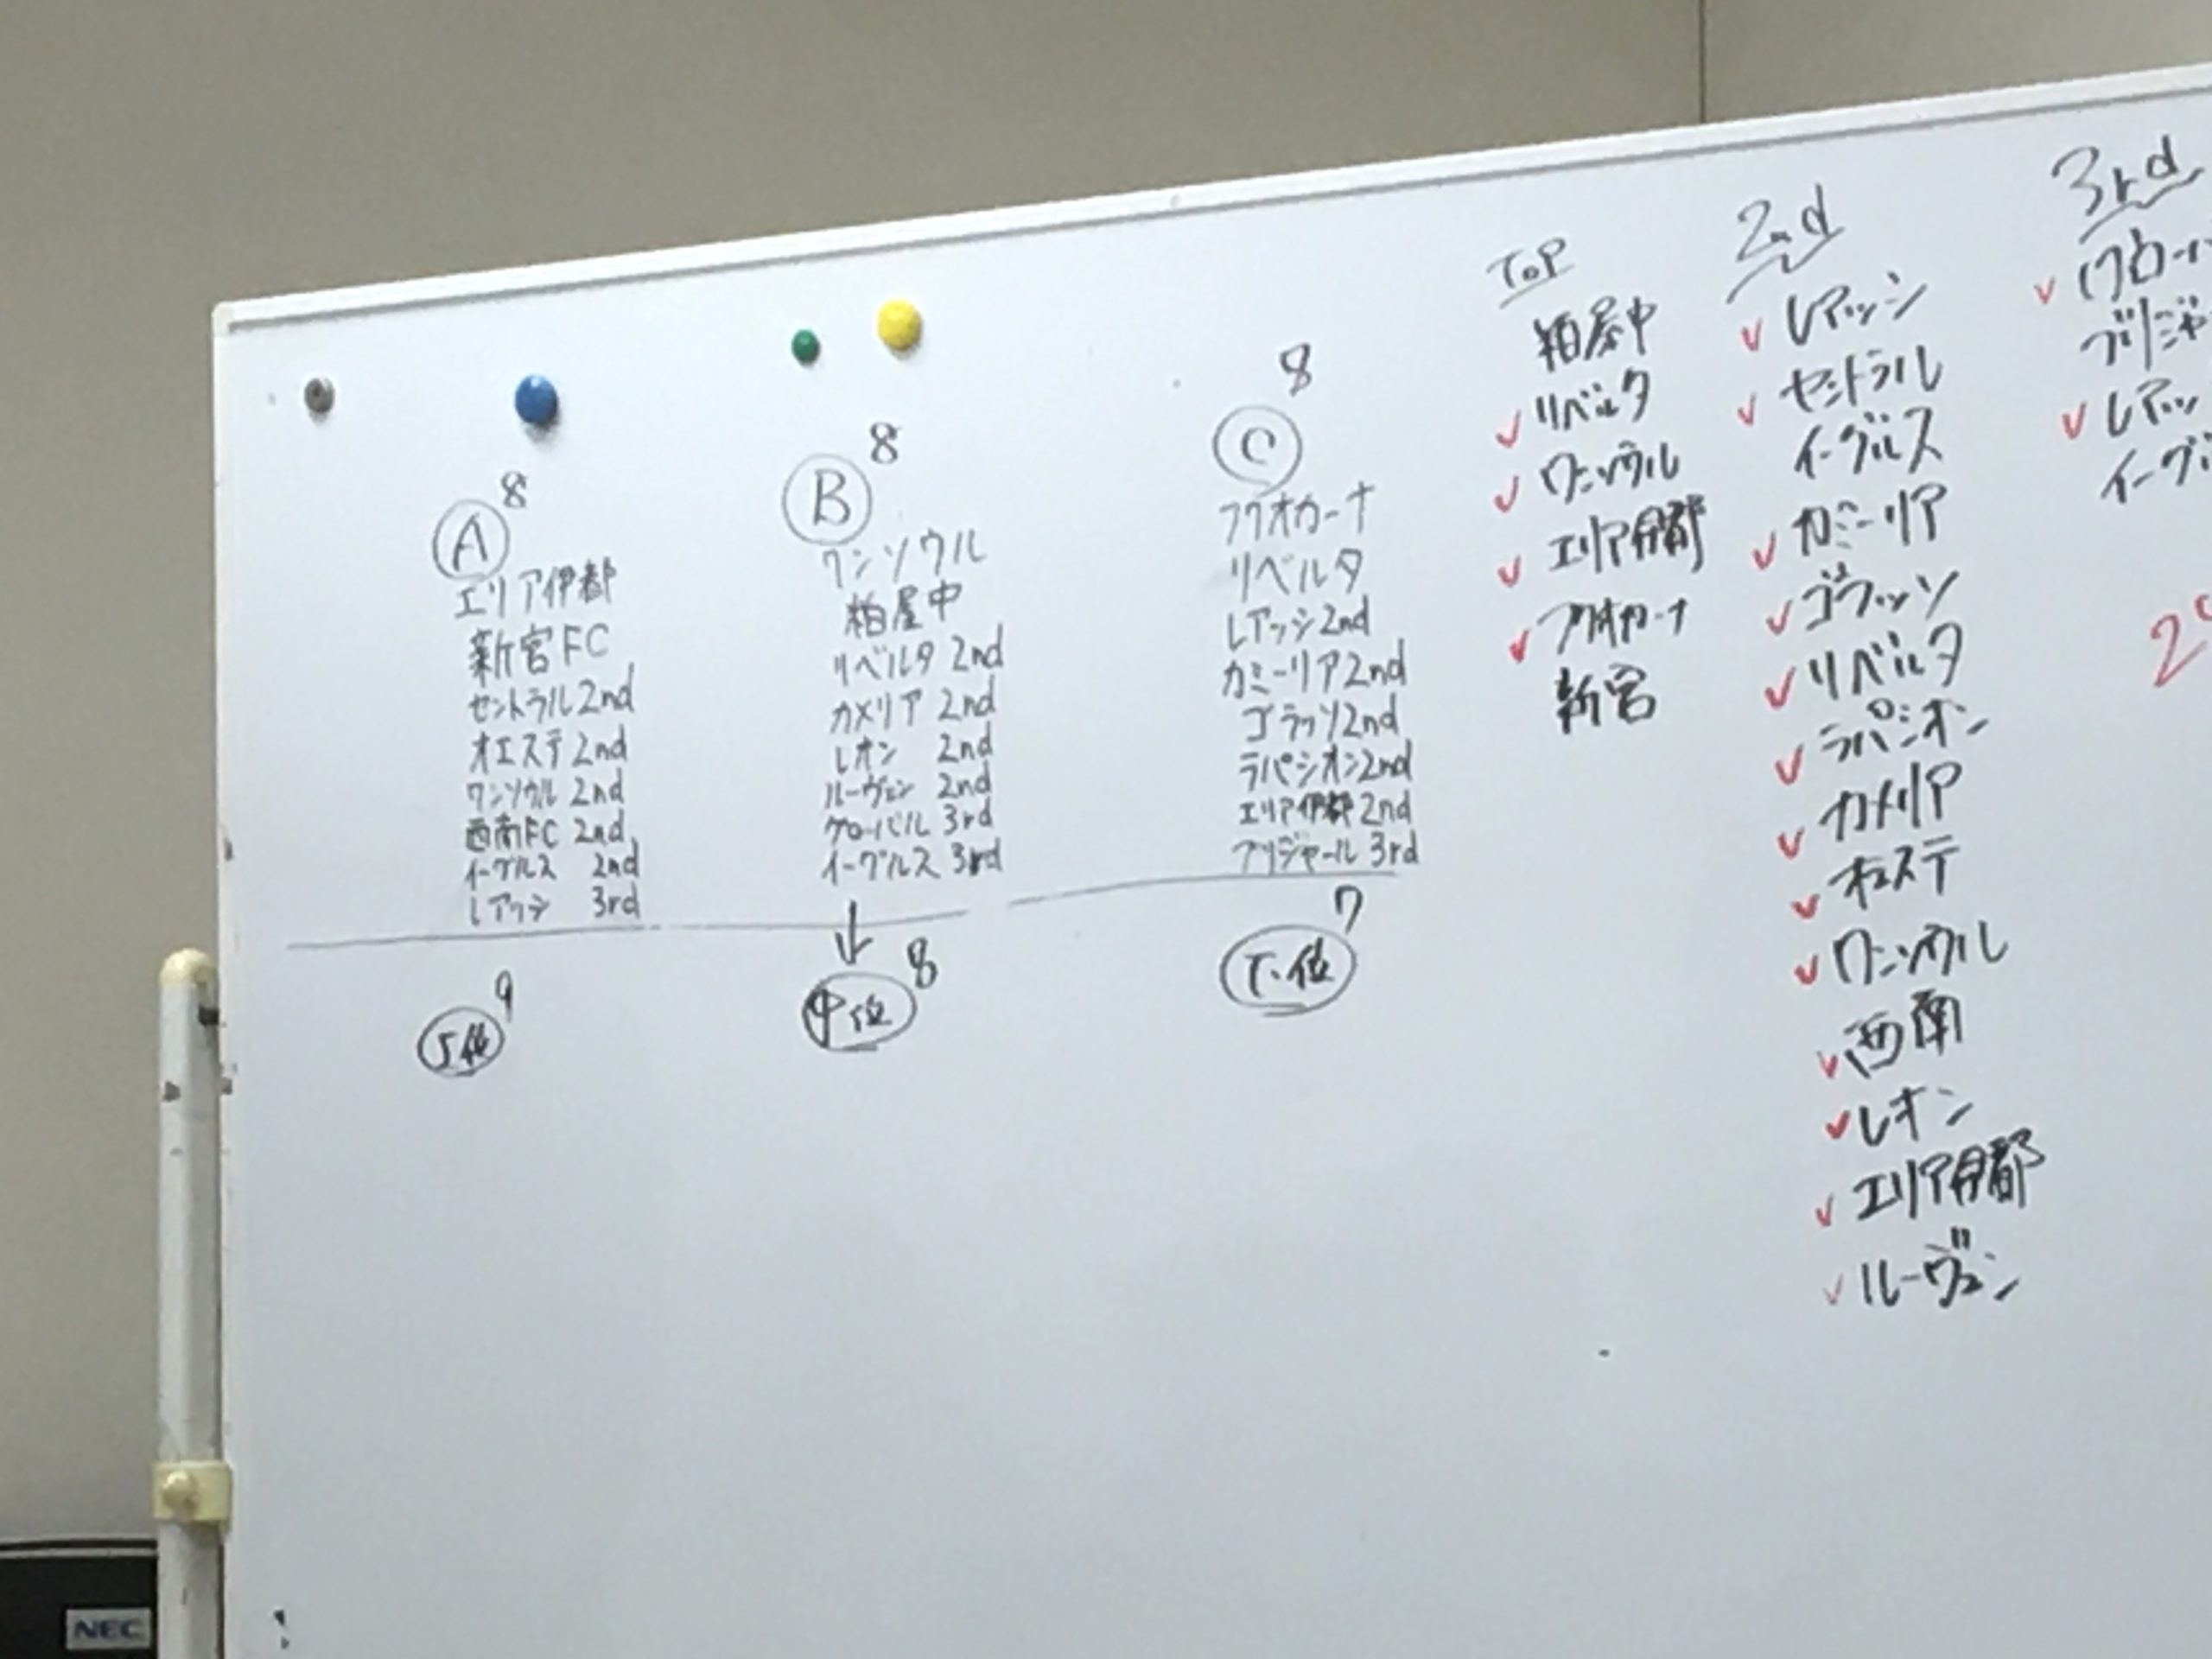 8
A
エリア伊都
新宮FC
セントラル2nd
オエステ2nd
ワンソウル 2nd
西南FC 2nd
イーグルス 2nd
レアッシ 3rd
8
B
ワンソウル
粕屋中
リベルタ 2nd
カメリア 2nd
レオン 2nd
ルーヴェン 2nd
グローバル 3rd
イーグルス 3rd
8
C
フクオカーナ
リベルタ
レアッシ2nd
カミーリア2nd
ゴラッソ2nd
ラパシオン2nd
エリア伊都2nd
ブリジャール 3rd
9
上位
↓
8
中位
7
下位
TOP
粕屋中
✓リベルタ
✓ワンソウル
✓エリア伊都
✓フクオカーナ
新宮
2nd
✓レアッシ
✓セントラル
イーグルス
✓カミーリア
✓ゴラッソ
✓リベルタ
✓ラパシオン
✓カメリア
✓オエステ
✓ワンソウル
✓西南
✓レオン
✓エリア伊都
✓ルーヴェン
3rd
ブリジャ
✓レアッ
イーグル
NEC